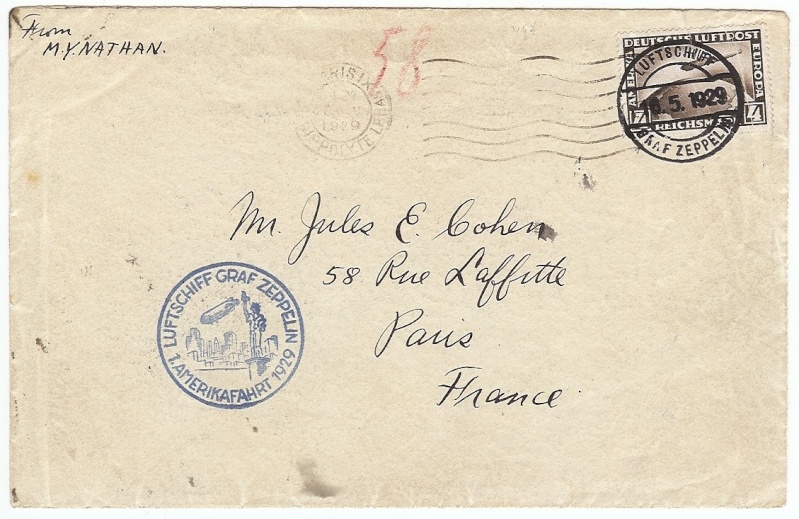 From
M.Y. NATHAN.
58
PARIS IX
1929
HIPPOLYTE LEBAS
DEUTSCHE LUFTPOST
EUROPA
AMERIKA
REICHSMARK
LUFTSCHIFF
5. 1929
GRAF ZEPPELIN
Mr. Jules E. Cohen
58 Rue Laffitte
Paris
France
LUFTSCHIFF GRAF ZEPPELIN
1. AMERIKAFAHRT 1929